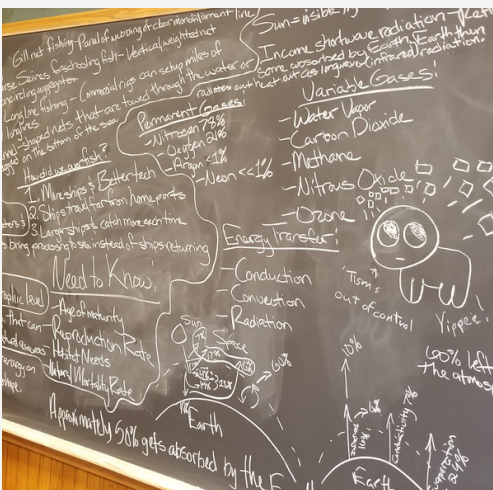 Gill net fishing - Panel of webbing of clear monofilament line
Seines for schooling fish - Vertical weighted net
encircling aggregates.
Longline fishing - Commercial rigs can setup miles of
longlines
shaped nets that are towed through the water or
on the bottom of the sea
How did we overfish?
1. More ships & Better tech
2. Ships travel far from home ports
3. Larger ships & catch more each time
bring processing to sea instead of ships returning
Need to Know:
- Age of maturity
- Reproduction Rate
- Habitat Needs
- Natural Mortality Rate
that can
energy on
Permanent Gases:
- Nitrogen 78%
- Oxygen 21%
- Argon <1%
- Neon <<1%
Sun = visible
Income shortwave radiation -
Some absorbed by Earth, Earth then
radiates out heat out as longwave infrared radiation.
Variable Gases:
- Water Vapor
- Carbon Dioxide
- Methane
- Nitrous Oxide
- Ozone
Energy Transfer:
- Conduction
- Convection
- Radiation
'Tism's
out of control
Yippee!
Sun
Space
Earth
Approximately 50% gets absorbed by the E
10%
Conductivity 7%
Evaporation
24%
Earth
60% left
the atmos